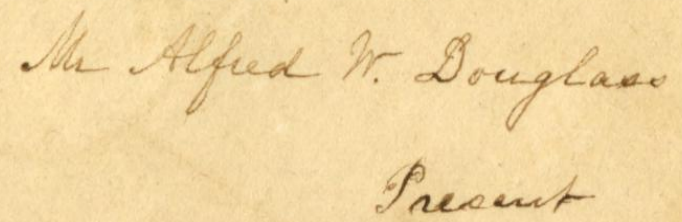 Mr Alfred W. Douglass
Present